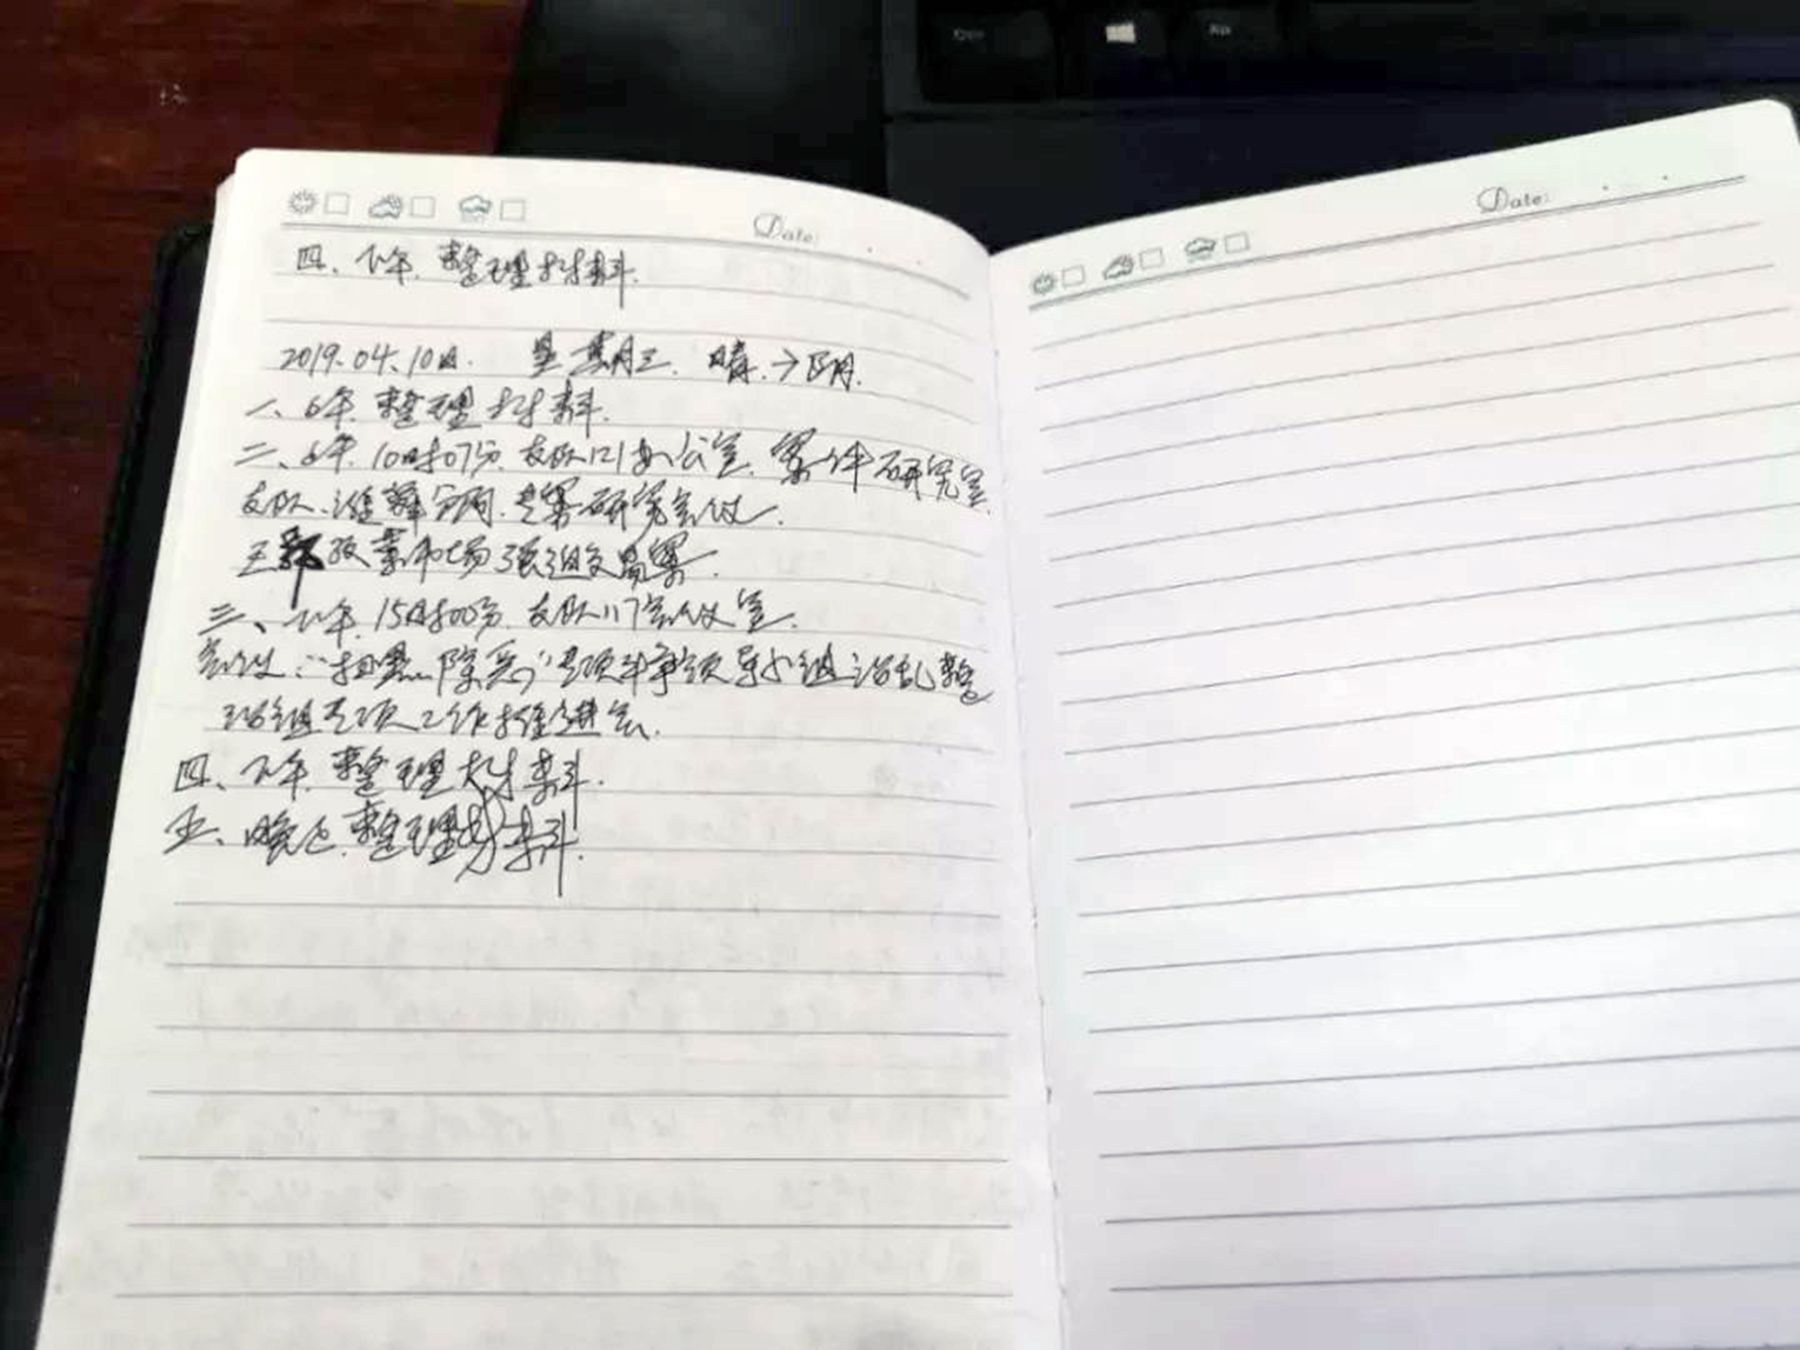 Date:
四、下午.整理材料.
2019.04.10日. 星期三. 晴.→阴.
一、上午.整理材料.
二、上午.10时07分.支队121办公室.案件研究室.
支队、潍 分局.专案研究会议.
王 蔬菜市场强迫交易案.
三、下午.15时00分.支队117会议室.
会议:“扫黑除恶”专项斗争领导小组治乱整
治组专项工作推进会.
四、下午.整理材料.
五、晚上.整理材料.
Date: